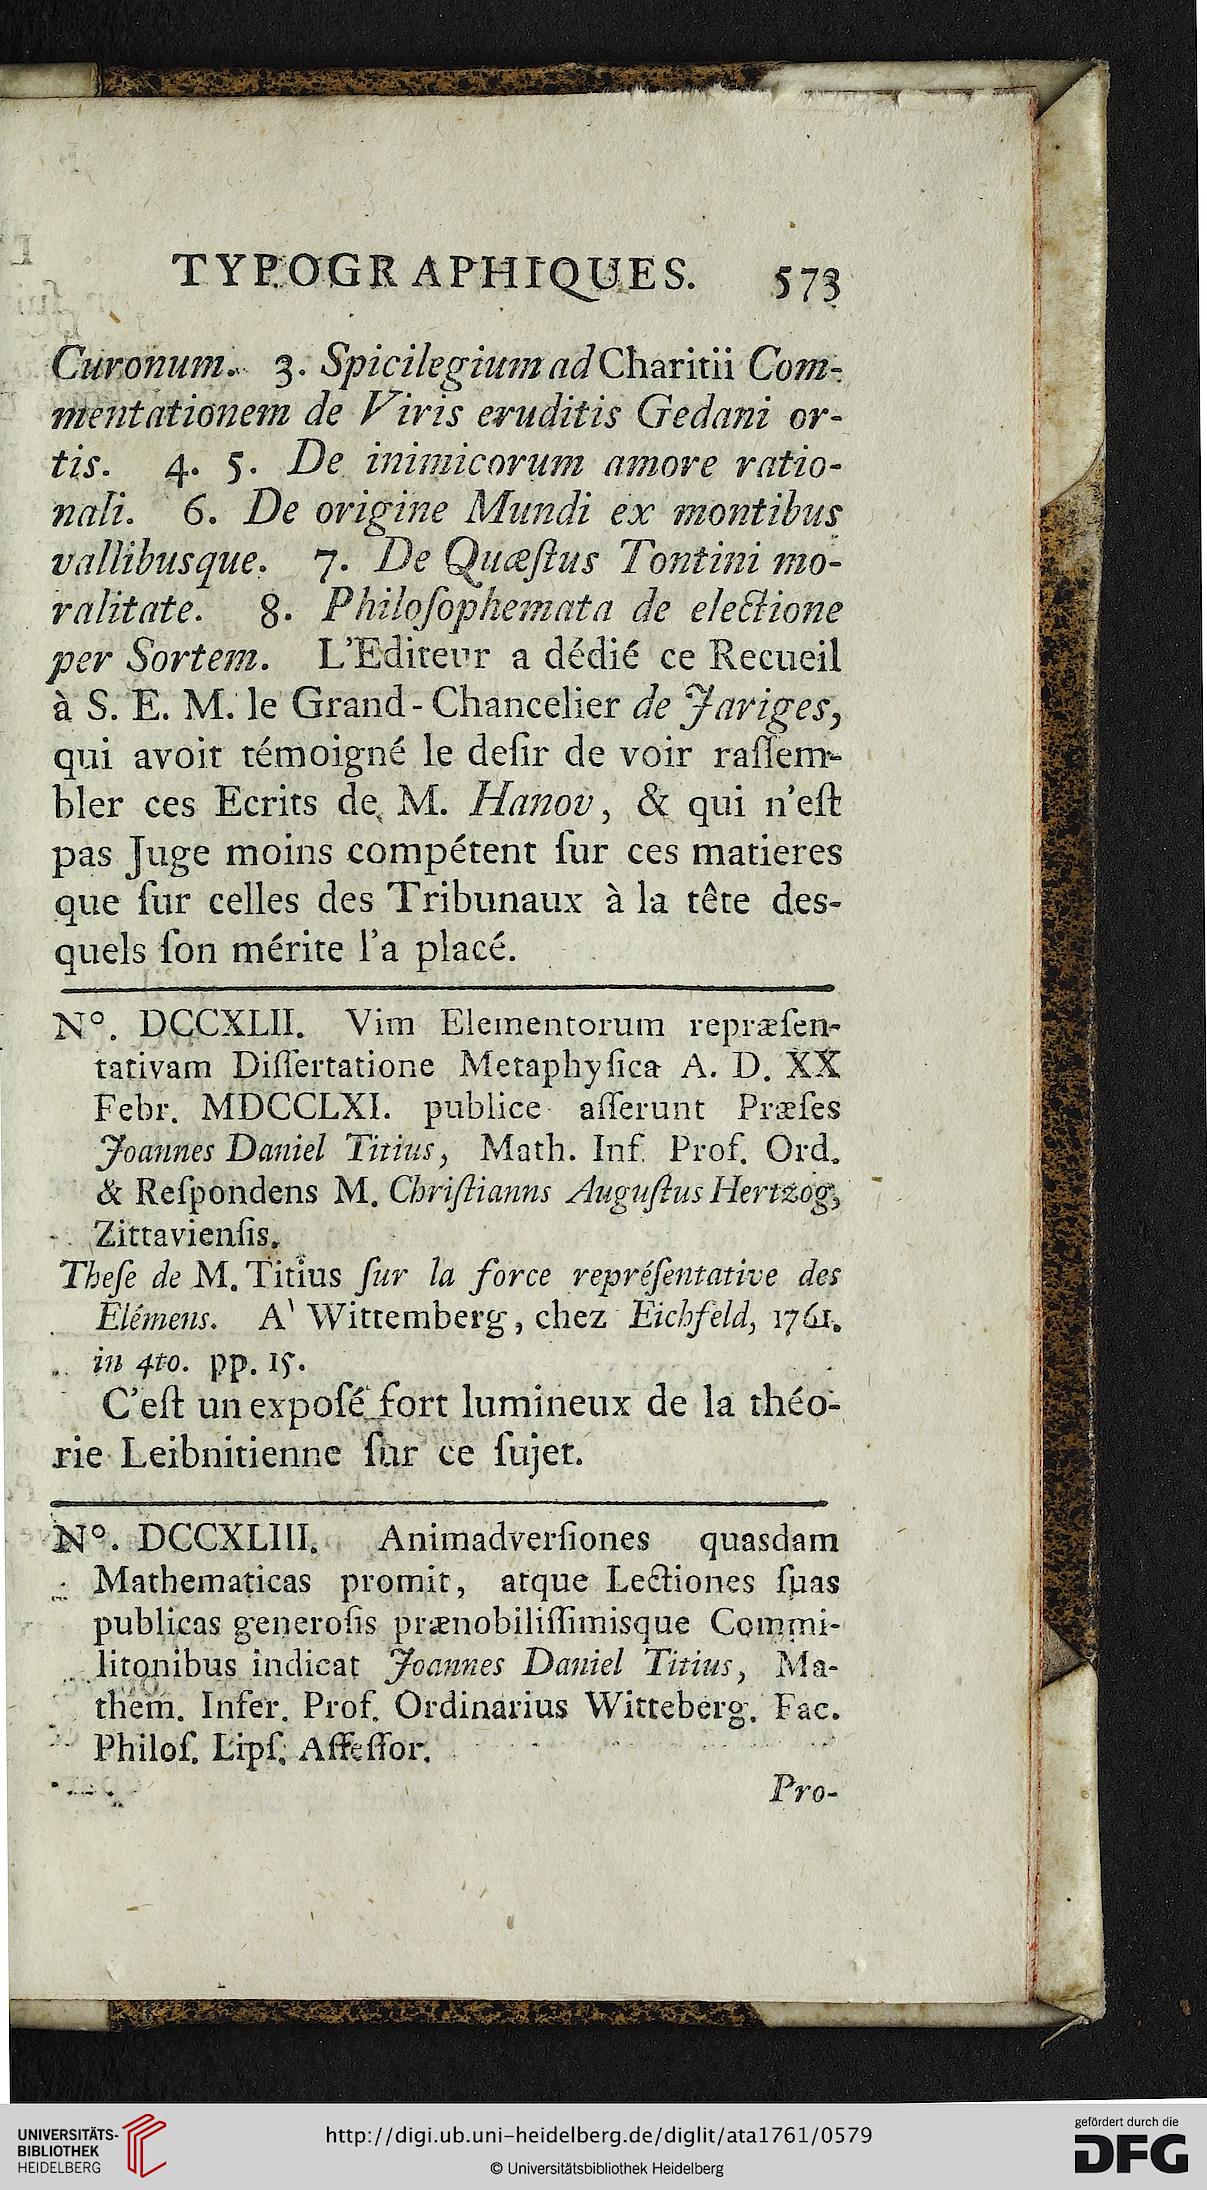 TYPOGRAPHIQUES. 573
Curonum. 3. Spicilegium ad Charitii Com-
mentationem de Viris eruditis Gedani or-
tis. 4. 5. De inimicorum amore ratio-
nali. 6. De origine Mundi ex montibus
vallibusque. 7. De Quæſtus Tontini mo-
ralitate. 8. Philoſophemata de electione
per Sortem. L'Editeur a dédié ce Recueil
à S. E. M. le Grand-Chancelier de Jariges,
qui avoit témoigné le deſir de voir raſſem-
bler ces Ecrits de M. Hanov, & qui n'eſt
pas Juge moins compétent ſur ces matieres
que ſur celles des Tribunaux à la tête des-
quels ſon mérite l'a placé.
N°. DCCXLII. Vim Elementorum repræſen-
tativam Diſſertatione Metaphyſica A. D. XX
Febr. MDCCLXI. publice aſſerunt Præſes
Joannes Daniel Titius, Math. Inf. Prof. Ord.
& Reſpondens M. Chriſtianns Auguſtus Hertzog,
Zittavienſis.
Theſe de M. Titius ſur la force repréſentative des
Elémens. A' Wittemberg, chez Eichfeld, 1761.
in 4to. pp. 15.
C'eſt un expoſé fort lumineux de la théo-
rie Leibnitienne ſur ce ſujet.
N°. DCCXLIII. Animadverſiones quasdam
Mathematicas promit, atque Lectiones ſuas
publicas generoſis prænobiliſſimisque Commi-
litonibus indicat Joannes Daniel Titius, Ma-
them. Infer. Prof. Ordinarius Witteberg. Fac.
Philoſ. Lipſ. Aſſeſſor.
Pro-
UNIVERSITÄTS-
BIBLIOTHEK
HEIDELBERG
http://digi.ub.uni-heidelberg.de/diglit/ata1761/0579
© Universitätsbibliothek Heidelberg
gefördert durch die
DFG